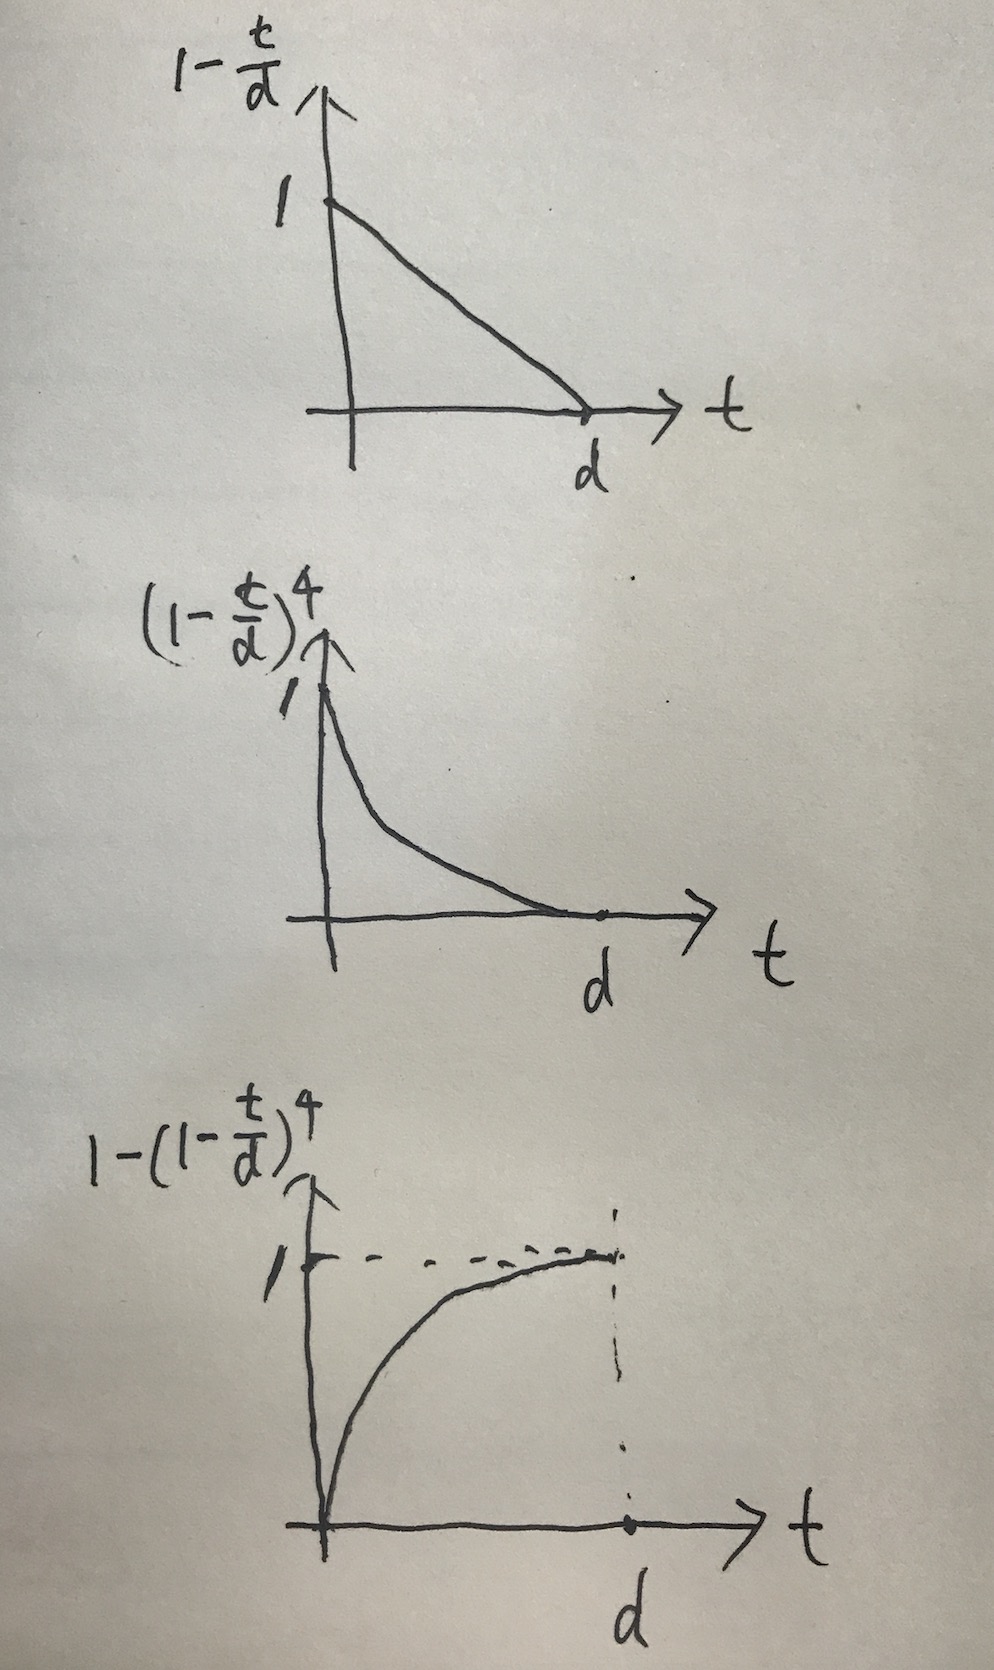 1 - t/d
1
t
d
(1 - t/d)^4
1
t
d
1 - (1 - t/d)^4
1
t
d